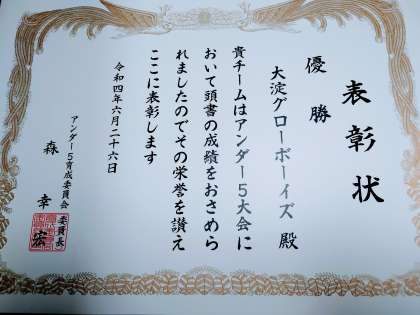 表彰状
優勝
大淀グローボーイズ 殿
貴チームはアンダー5大会に
おいて頭書の成績をおさめら
れましたのでその栄誉を讃え
ここに表彰します
令和四年六月二十六日
アンダー5育成委員会
委員長
森 幸宏